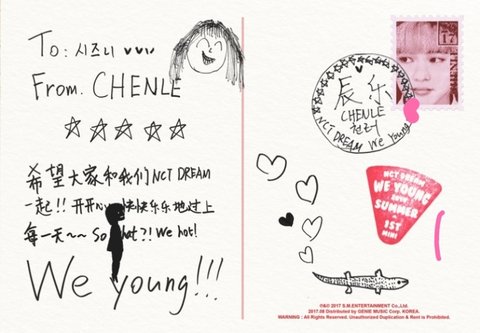 To: 시즈니
From. CHENLE
希望大家和我们 NCT DREAM
一起!! 开开 快快乐乐地过上
每一天~~ So hat?! We hot!
We young!!!
17
CHENLE
辰乐
CHENLE
천러
NCT DREAM We Young
NCT DREAM
WE YOUNG
2017
SUMMER
1ST
MINI
©& 2017 S.M.ENTERTAINMENT Co.,Ltd.
2017.08 Distributed by GENIE MUSIC Corp. KOREA.
WARNING : All Rights Reserved. Unauthorized Duplication & Rent is Prohibited.